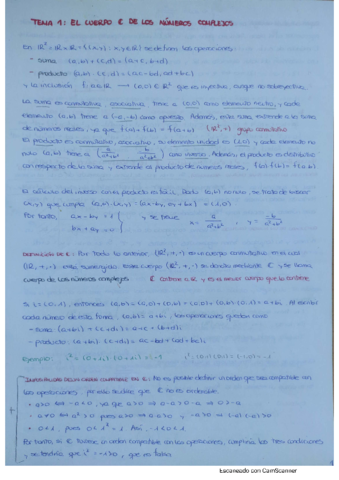 TEMA 1: EL CUERPO ℂ DE LOS NÚMEROS COMPLEJOS
En ℝ² = ℝ×ℝ = {(x,y) : x,y∈ℝ} se definen las operaciones:
- suma: (a,b)+(c,d) = (a+c, b+d)
- producto: (a,b)·(c,d) = (ac-bd, ad+bc)
y la inclusión f: a∈ℝ → (a,0)∈ℝ² que es inyectiva, aunque no sobreyectiva.
La suma es conmutativa, asociativa. Tiene a (0,0) como elemento neutro, y cada
elemento (a,b) tiene a (-a,-b) como opuesto. Además, esta suma extiende a la suma
de números reales, ya que f(a)+f(b) = f(a+b) (ℝ²,+) grupo conmutativo
El producto es conmutativo, asociativo, su elemento unidad es (1,0) y cada elemento no
nulo (a,b) tiene a (a/(a²+b²), -b/(a²+b²)) como inverso. Además, el producto es distributivo
con respecto de la suma y extiende el producto de números reales, f(a)·f(b) = f(a·b)
El cálculo del inverso con el producto es fácil. Dado (a,b) no nulo, se trata de buscar
(x,y) que cumpla (a,b)·(x,y) = (ax-by, ay+bx) = (1,0)
Por tanto, ax-by = 1
bx+ay = 0 } y se tiene x = a/(a²+b²), y = -b/(a²+b²)
Definición de ℂ: Por todo lo anterior (ℝ²,+,·) es un cuerpo conmutativo en el cual
(ℝ,+,·) está sumergido. Este cuerpo (ℝ²,+,·) se denota mediante ℂ y se llama
cuerpo de los números complejos. ℂ contiene a ℝ y es el menor cuerpo que lo contiene
Si i = (0,1), entonces (a,b) = (a,0)+(0,b) = (a,0)+(b,0)·(0,1) = a+bi. Al escribir
cada número de esta forma, (a,b) = a+bi, las operaciones quedan así:
- suma: (a+bi)+(c+di) = a+c+(b+d)i
- producto: (a+bi)·(c+di) = ac-bd+(ad+bc)i
Ejemplo: i² = (0+1i)·(0+1i) = -1
No es posible definir un orden que sea compatible con
las operaciones, por esto resulta que ℂ no es ordenable
• a>0 ⇔ -a<0, ya que a>0 ⇒ 0-a>a-a ⇒ 0>-a
• a≠0 ⇔ a²>0 pues a>0 ⇒ a·a>0 y -a>0 ⇒ (-a)·(-a)>0
• 0<1, pues 0<1² = 1 Así, -1<0
Por tanto, si ℂ tuviese un orden compatible con las operaciones, cumpliría las tres condiciones
y se tendría que i² = -1>0, que es falso
Escaneado con CamScanner